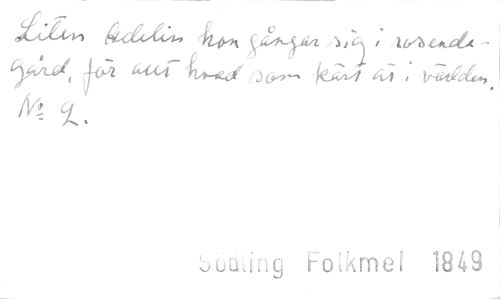 Liten Adelin hon gångar sig i rosende-
gård, för allt hvad som kärt är i världen.
No 2.
Södling Folkmel 1849